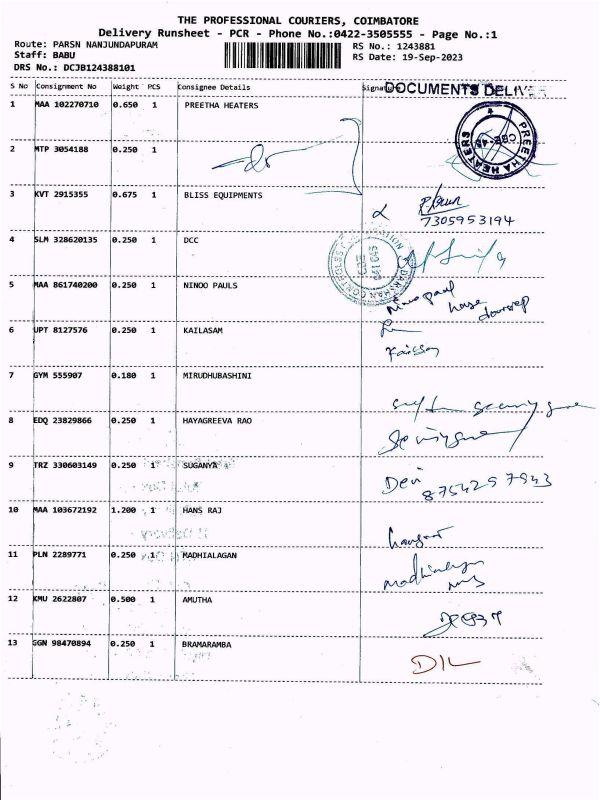 THE PROFESSIONAL COURIERS, COIMBATORE
Delivery Runsheet - PCR - Phone No.:0422-3505555 - Page No.:1
Route: PARSN NANJUNDAPURAM RS No.: 1243881
Staff: BABU RS Date: 19-Sep-2023
DRS No.: DCJB124388101
S No Consignment No Weight PCS Consignee Details Signatu
DOCUMENTS DELIVE
1 MAA 102270710 0.650 1 PREETHA HEATERS
PREETHA HEATERS
CBE-45
2 MTP 3054188 0.250 1
3 KVT 2915355 0.675 1 BLISS EQUIPMENTS
7305953194
4 SLM 328620135 0.250 1 DCC
5 MAA 861740200 0.250 1 NINOO PAULS
Ninoo paul
house doorstep
6 UPT 8127576 0.250 1 KAILASAM
7 GYM 555907 0.180 1 MIRUDHUBASHINI
8 EDQ 23829866 0.250 1 HAYAGREEVA RAO
9 TRZ 330603149 0.250 1 SUGANYA
Devi
8754257943
10 MAA 103672192 1.200 1 HANS RAJ
11 PLN 2289771 0.250 1 MADHIALAGAN
madhialagan
12 KMU 2622807 0.500 1 AMUTHA
13 GGN 98470894 0.250 1 BRAMARAMBA
D/L